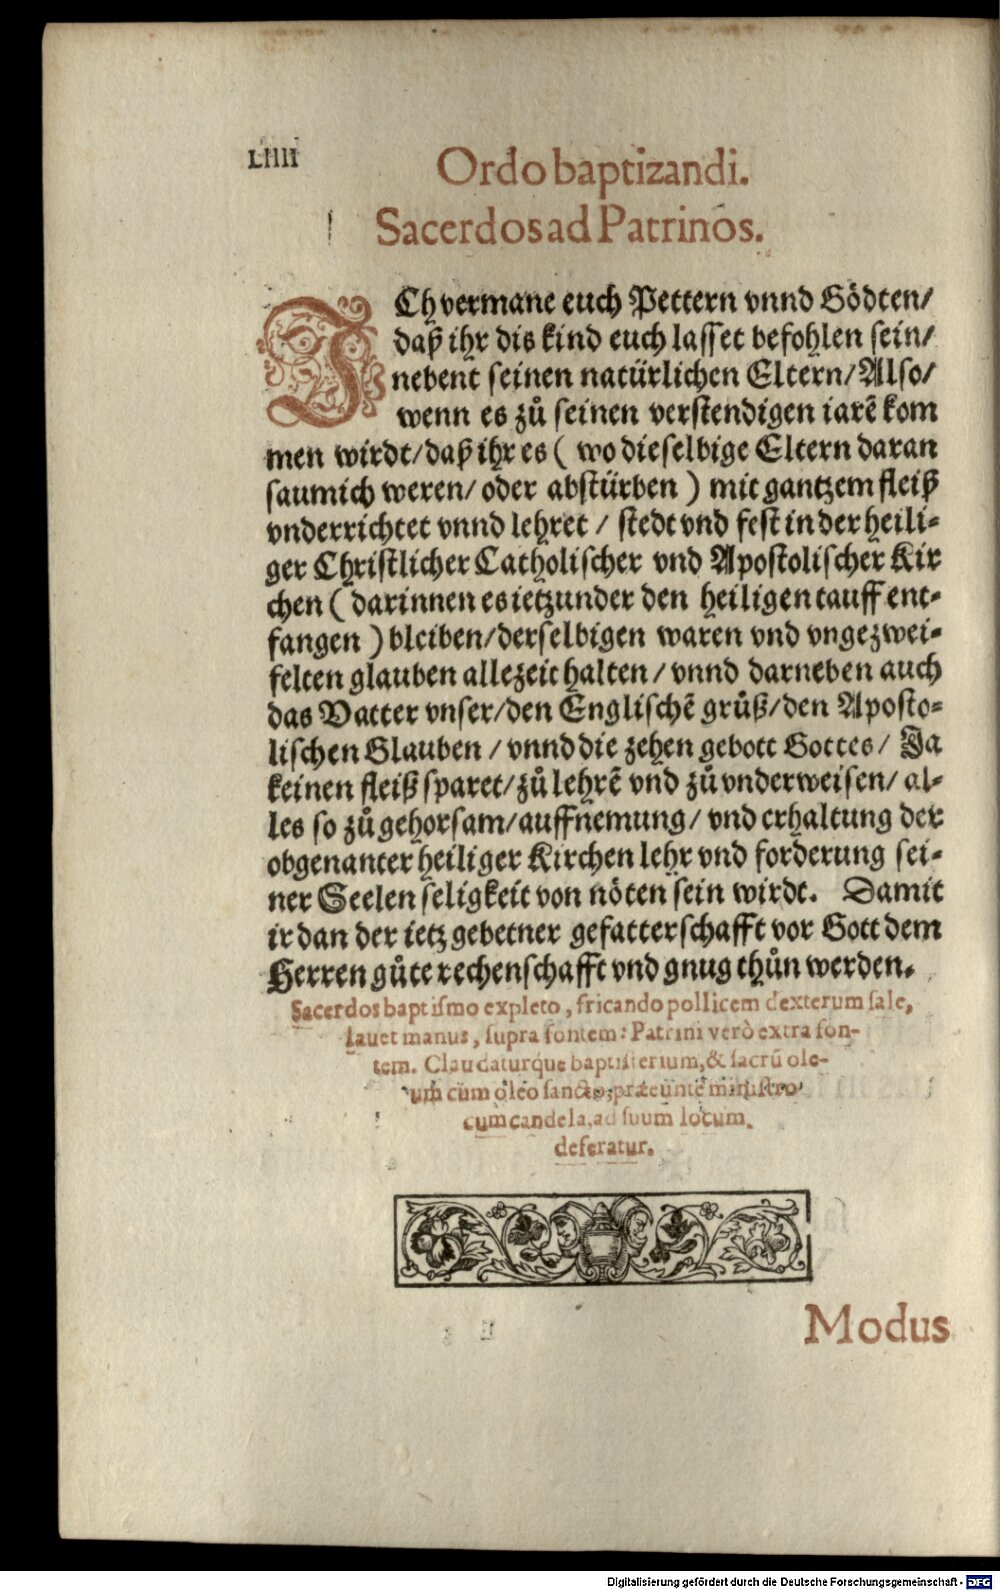 LIIII
Ordo baptizandi.
Sacerdos ad Patrinos.
ICh vermane euch Pettern vnnd Gödten/
daß ihr dis kind euch lasset befohlen sein/
nebent seinen natürlichen Eltern/Also/
wenn es zů seinen verstendigen iarẽ kom
men wirdt/daß ihr es ( wo dieselbige Eltern daran
saumich weren/ oder abstürben ) mit gantzem fleiß
vnderrichtet vnnd lehret / stedt vnd fest in der heili-
ger Christlicher Catholischer vnd Apostolischer Kir
chen ( darinnen es ietzunder den heiligen tauff ent-
fangen ) bleiben/derselbigen waren vnd vngezwei-
felten glauben allezeit halten/ vnnd darneben auch
das Vatter vnser/den Englischẽ grůß/den Aposto-
lischen Glauben / vnnd die zehen gebott Gottes/ Ja
keinen fleiß sparet/zů lehrẽ vnd zů vnderweisen/ al-
les so zů gehorsam/auffnemung/ vnd erhaltung der
obgenanter heiliger Kirchen lehr vnd forderung sei-
ner Seelen seligkeit von nöten sein wirdt. Damit
ir dan der ietz gebetner gefatterschafft vor Gott dem
Herren gůte rechenschafft vnd gnug thůn werden.
Sacerdos baptismo expleto, fricando pollicem dexterum sale,
lauet manus, supra fontem: Patrini verò extra fon-
tem. Claudaturq́ue baptisterium, & sacrũ ole-
um cum oleo sancto, præeunte ministro
cum candela, ad suum locum
deferatur.
Modus
Digitalisierung gefördert durch die Deutsche Forschungsgemeinschaft - DFG